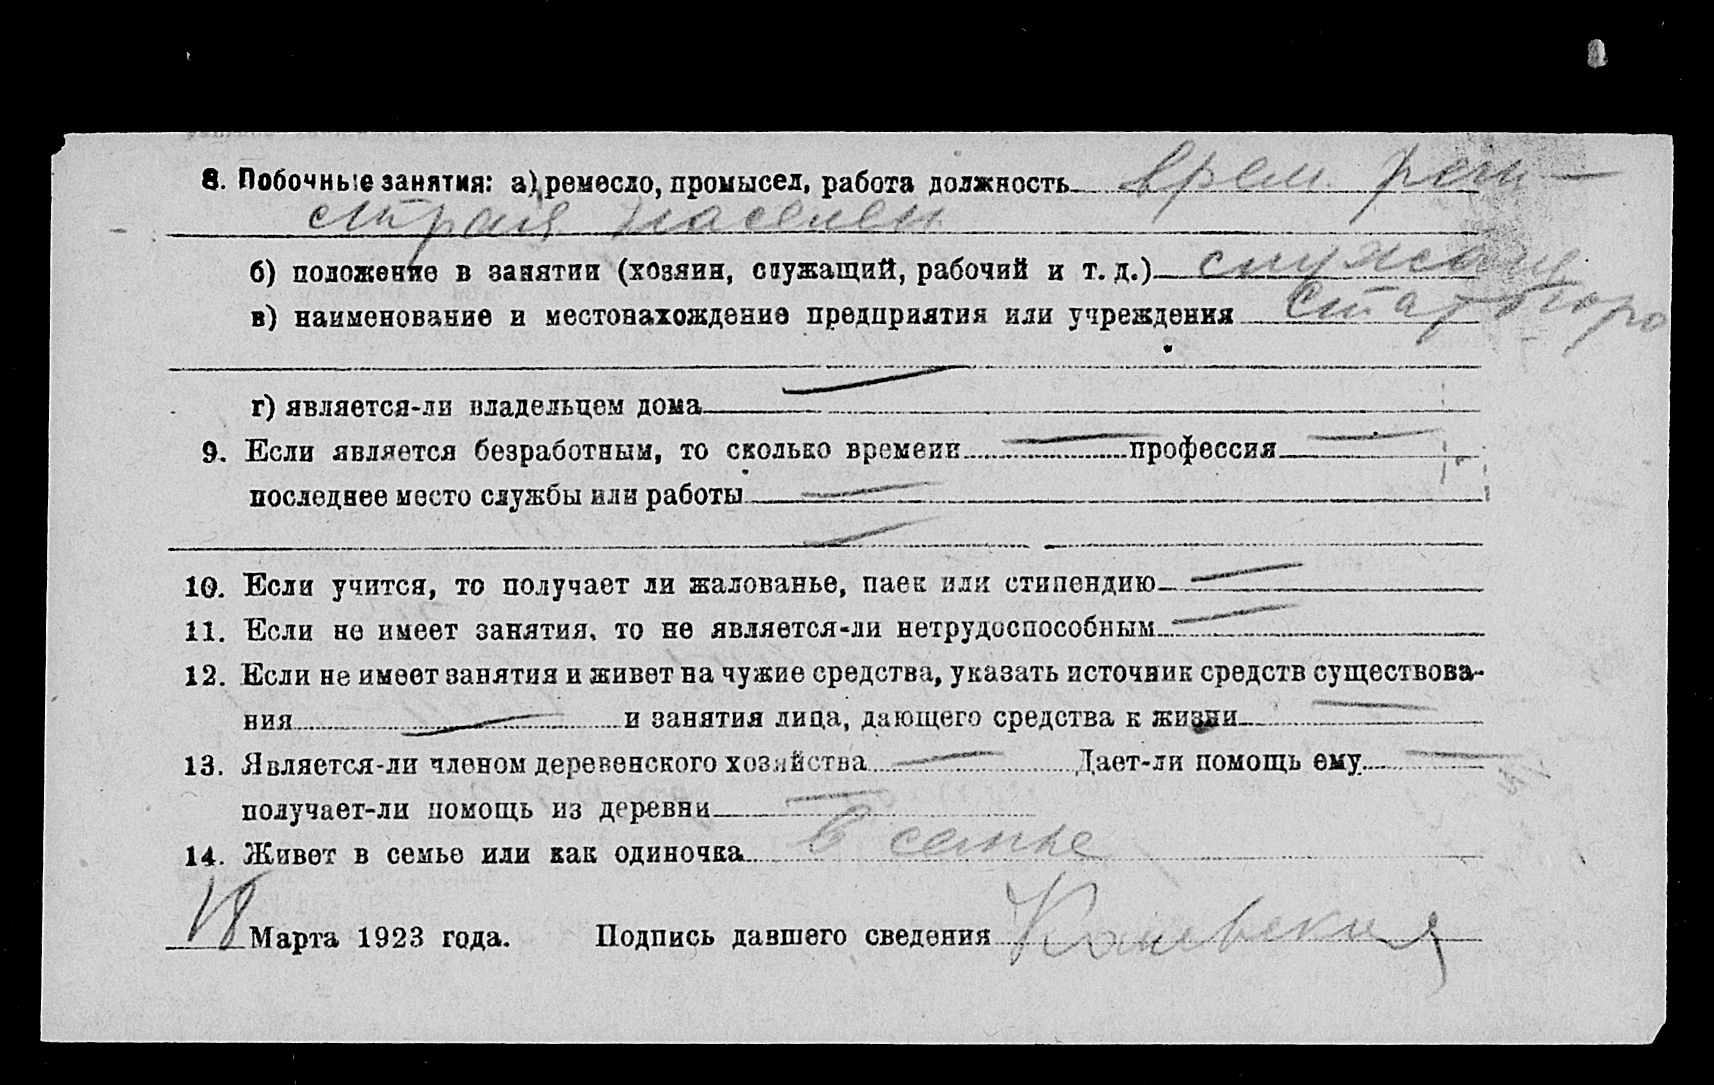 8. Побочные занятия: а) ремесло, промысел, работа должность врем. реги-
страц. населен.
б) положение в занятии (хозяин, служащий, рабочий и т. д.) служащ
в) наименование и местонахождение предприятия или учреждения Статбюро
г) является-ли владельцем дома
9. Если является безработным, то сколько времени профессия
последнее место службы или работы
10. Если учится, то получает ли жалованье, паек или стипендию
11. Если не имеет занятия, то не является-ли нетрудоспособным
12. Если не имеет занятия и живет на чужие средства, указать источник средств существова-
ния и занятия лица, дающего средства к жизни
13. Является-ли членом деревенского хозяйства Дает-ли помощь ему
получает-ли помощь из деревни
14. Живет в семье или как одиночка В семье
18 Марта 1923 года. Подпись давшего сведения